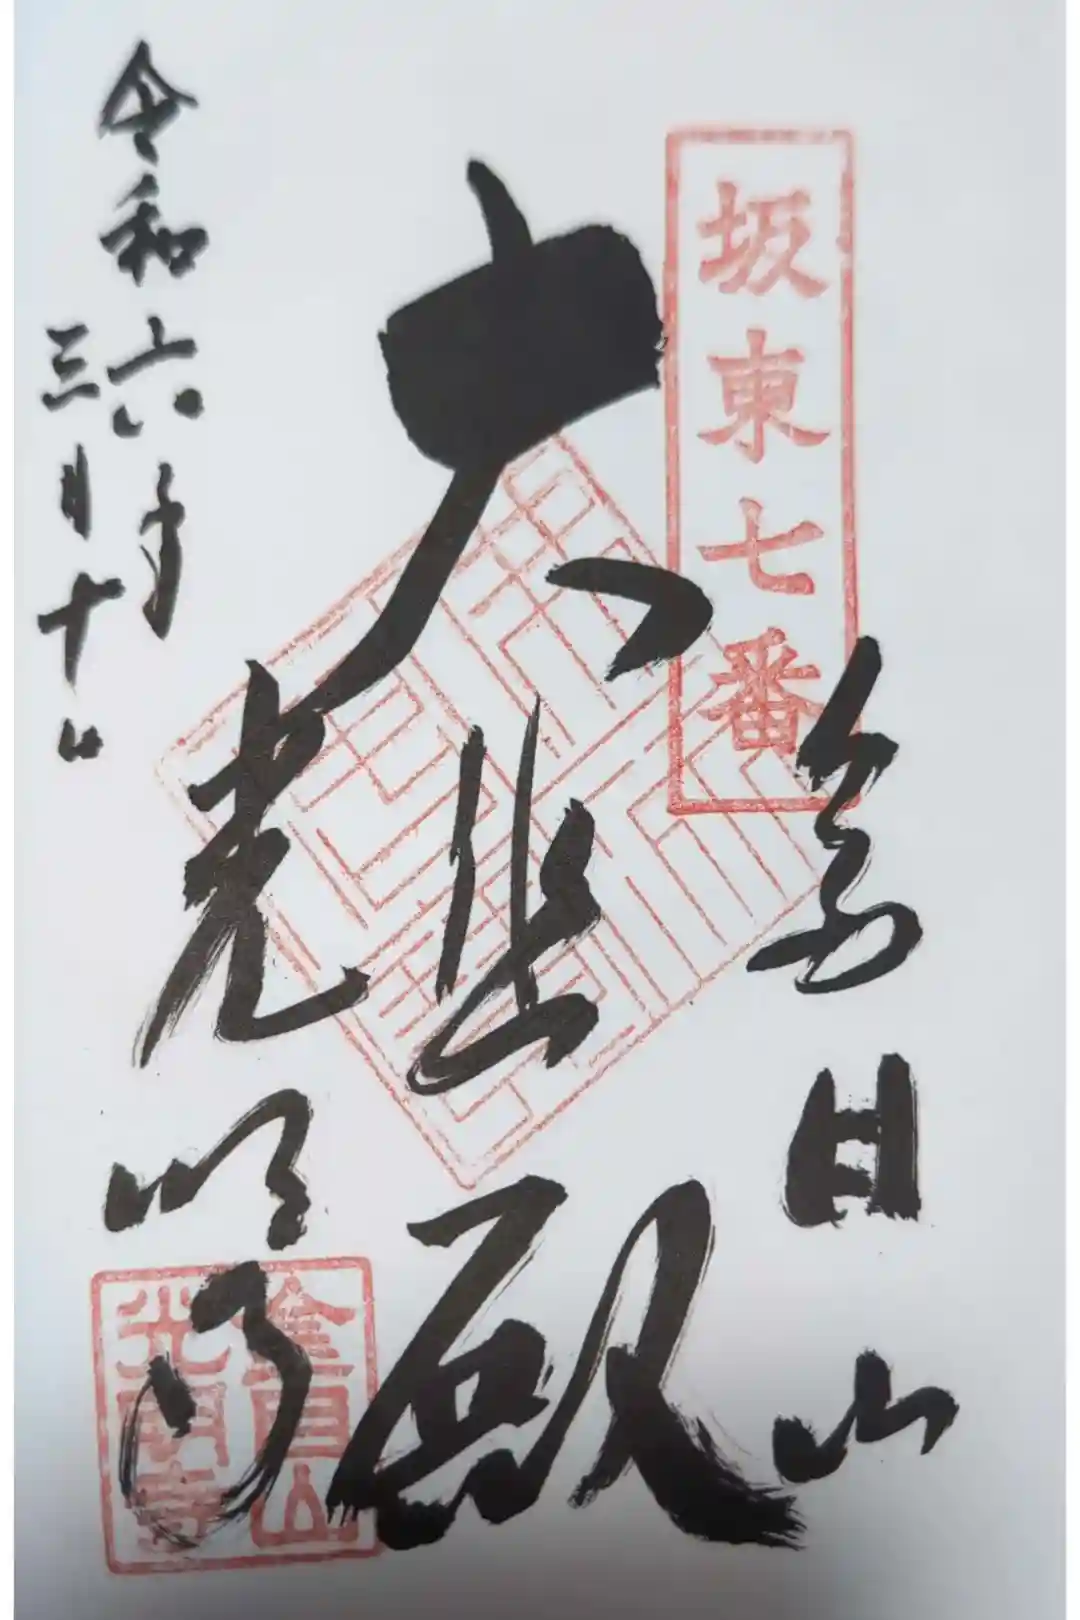 坂東七番
金目山
大悲殿
光明寺
令和六年
三月十日
金目山
光明寺